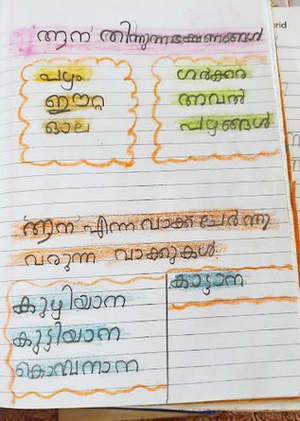 ആന തിന്നുന്ന ഭക്ഷണങ്ങൾ
പഴം
ഈറ്റ
ഓല
ശർക്കര
അവൽ
പഴങ്ങൾ
ആന എന്ന വാക്ക് ചേർന്നു
വരുന്ന വാക്കുകൾ
കുഴിയാന
കുട്ടിയാന
കൊമ്പനാന
കാട്ടാന